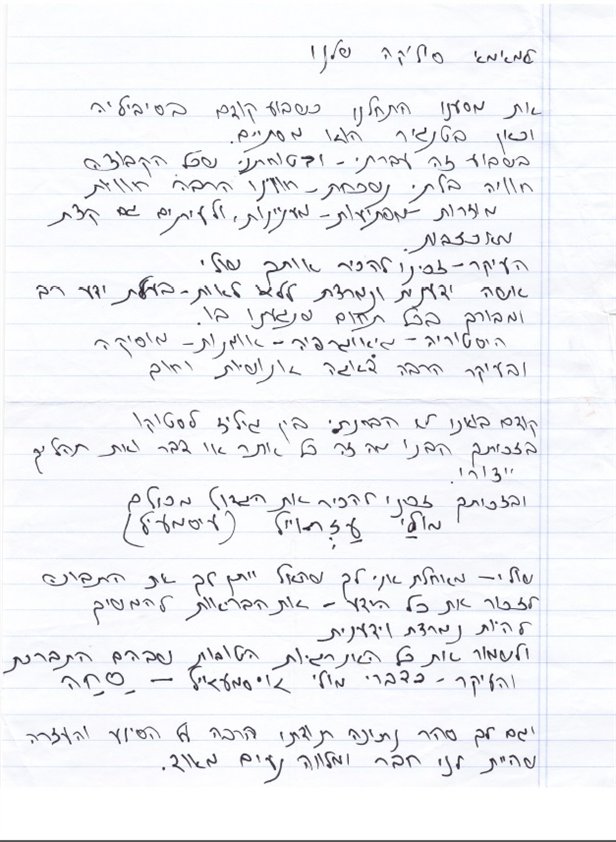 לאמאמא סוליקה שלנו
את מסענו התחלנו כשבוע קודם בסיביליה
וכאן בטנגיר הוא מסתיים.
בשבוע זה עברתי - ובטוחתני שכל הקבוצה
חוויה בלתי נשכחת - חווינו הרבה חוויות
מוזרות - מפתיעות - מעניינות, ולעיתים גם קצת
מאכזבות.
העיקר - זכינו להכיר אותך שולי
אשה ידענית ונמרצת ללא לאות - בעלת ידע רב
ומבורך בכל תחום שנגענו בו.
היסטוריה - גיאוגרפיה - אומנות - מוסיקה
ובעיקר הרבה דאגה אנושיות וחום
קודם באנו לא הבחנתי בין גיליז לסטוקו
בזכותך הבנו מה זה כל אתר או דבר ואת תהליך
ייצורו.
ובזכותך זכינו להכיר את הגדול מכולם
מולי (יסמעיל)
שולי - מאחלת אני לך שהאל ייתן לך את התבונה
לזכור את כל הידע - את הבריאות להמשיך
להיות נמרצת וידענית
ולשמור את כל האנרגיות הטובות שבהם התברכת
והעיקר - כדברי מולי - סַחַה
וגם לך סהר נתינה תודתי הרבה על הסיוע והעזרה
שהיית לנו חבר ומלווה נעים מאוד.